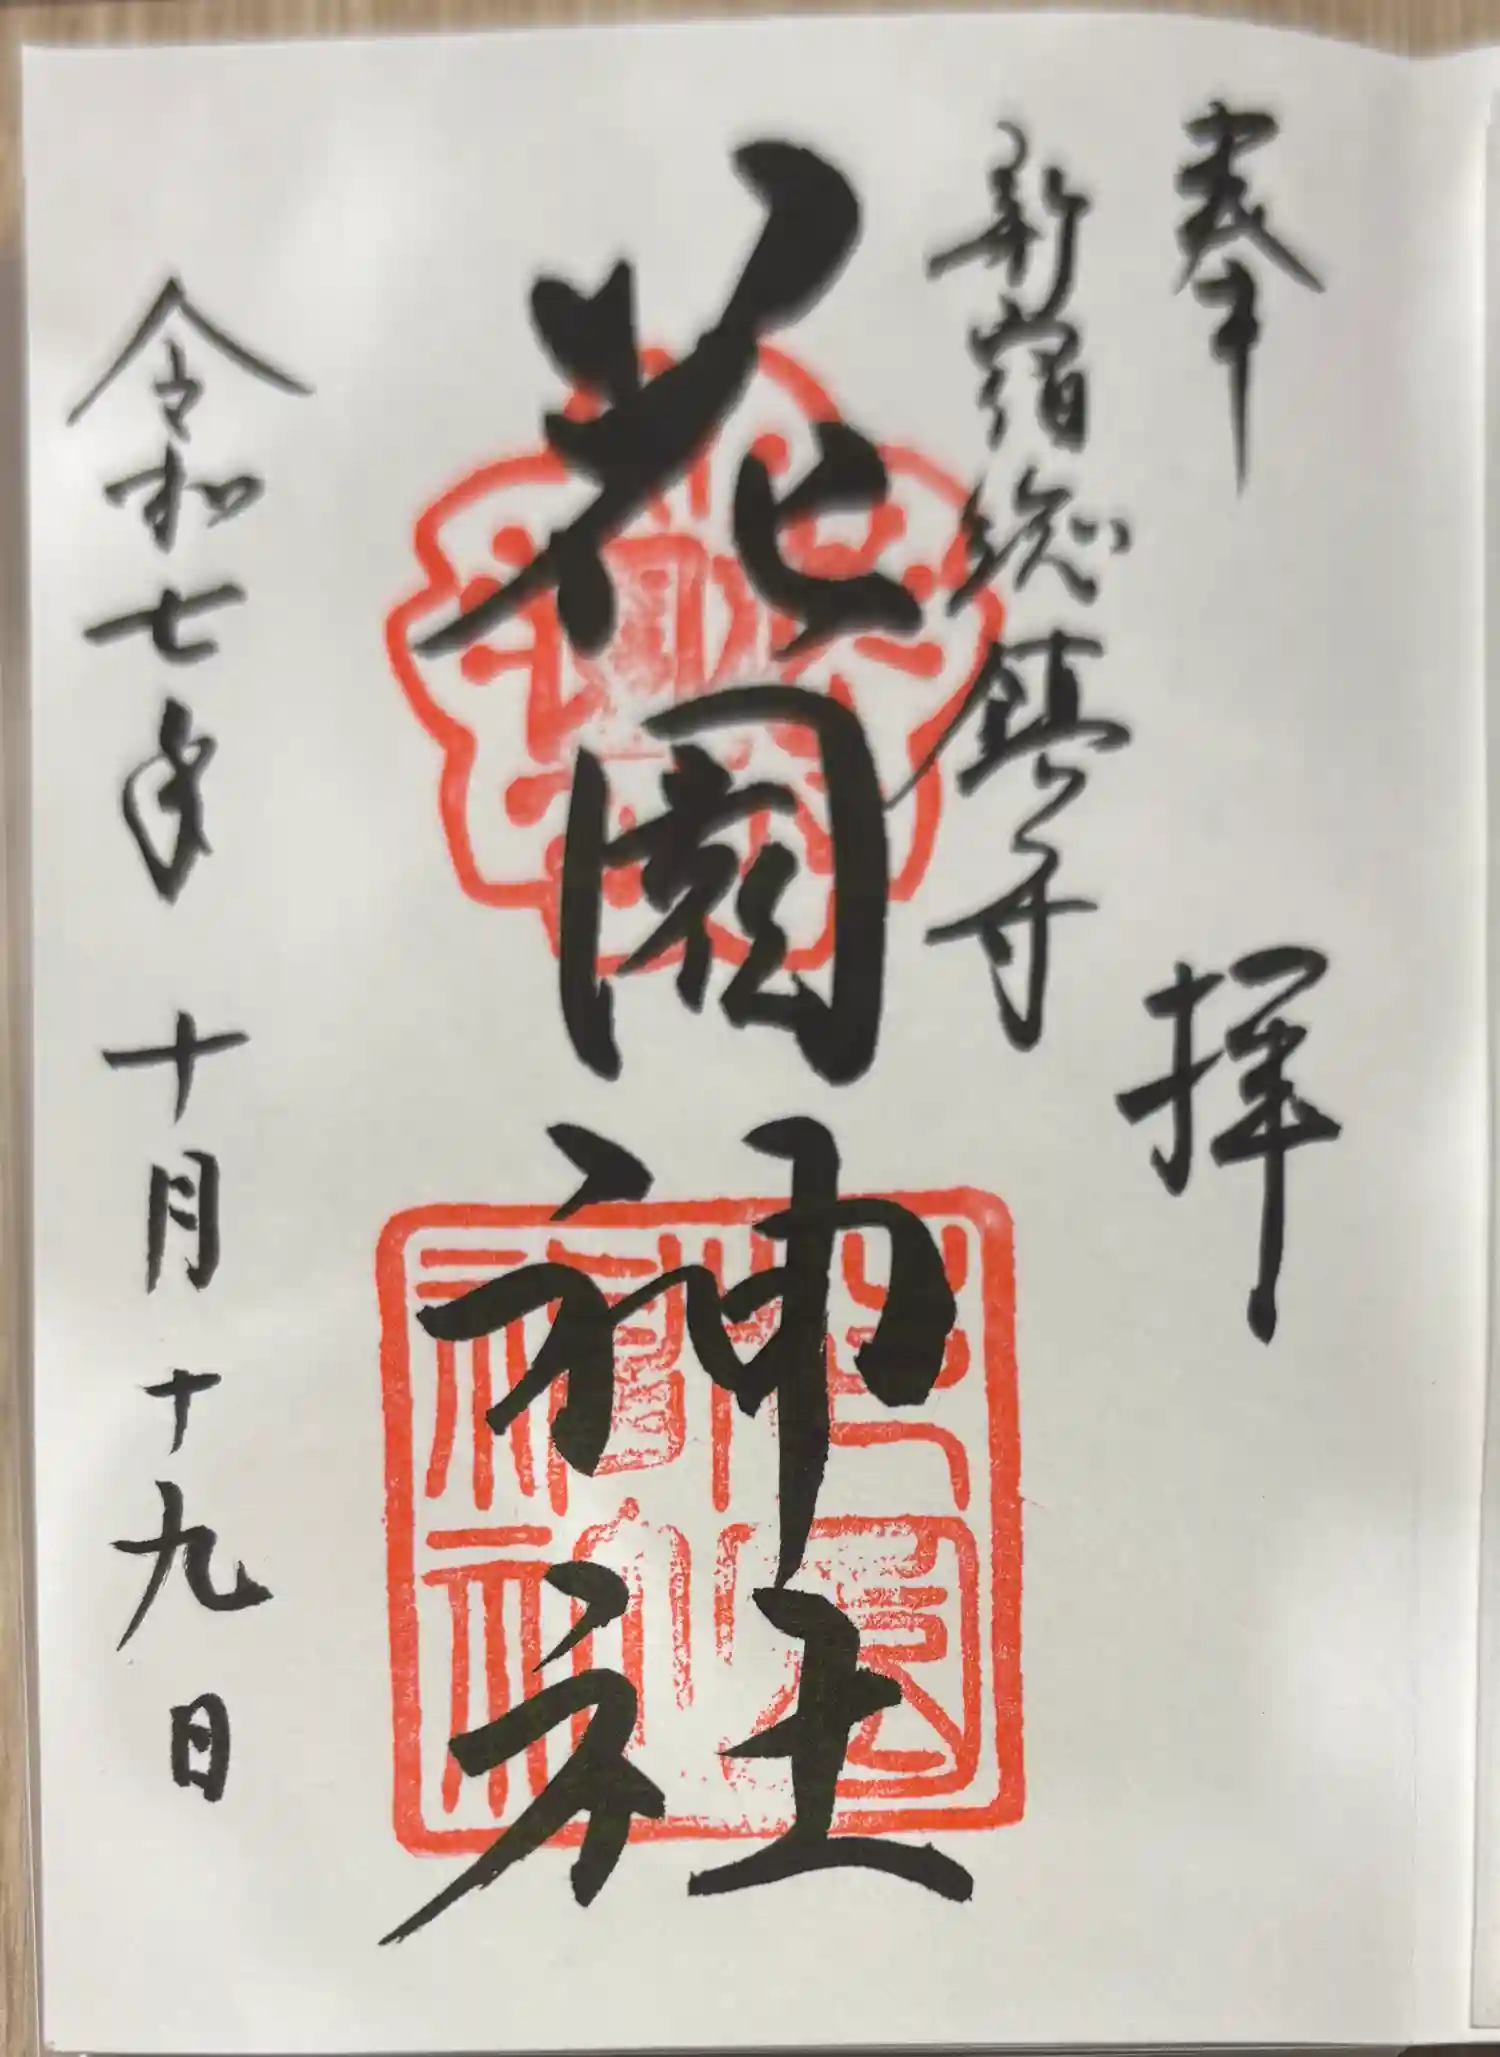 奉拝
新宿総鎮守
花園神社
令和七年十月十九日